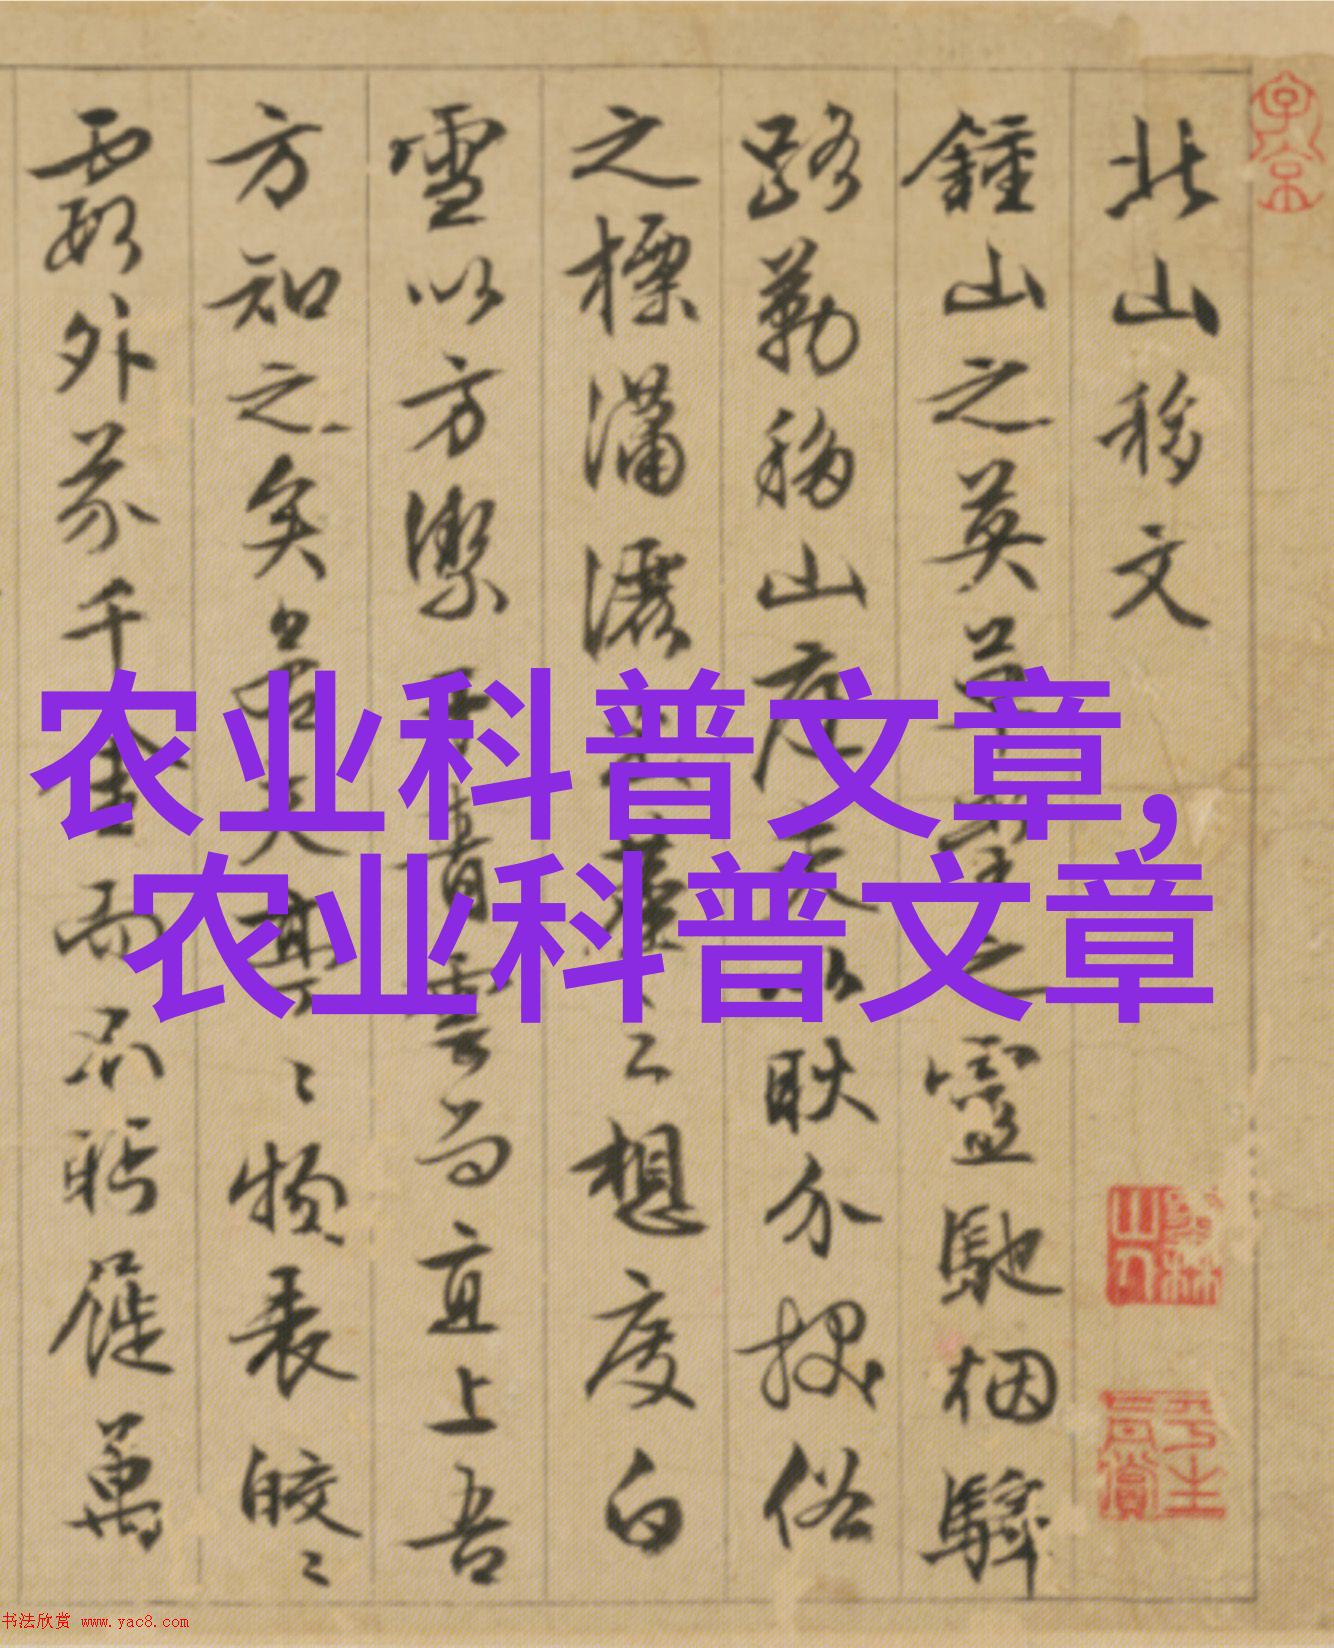 农业科普文章,
农业科普文章
北山移文
鍾山之英草堂之靈馳烟驛
路勒移山庭夫以耿介拔俗
之標瀟灑出塵之想度白
雪以方潔干青雲而直上吾
方知之矣若其亭〻物表皎〻
霞外芥千金而不眄屣萬
书法欣赏 www.yac8.com